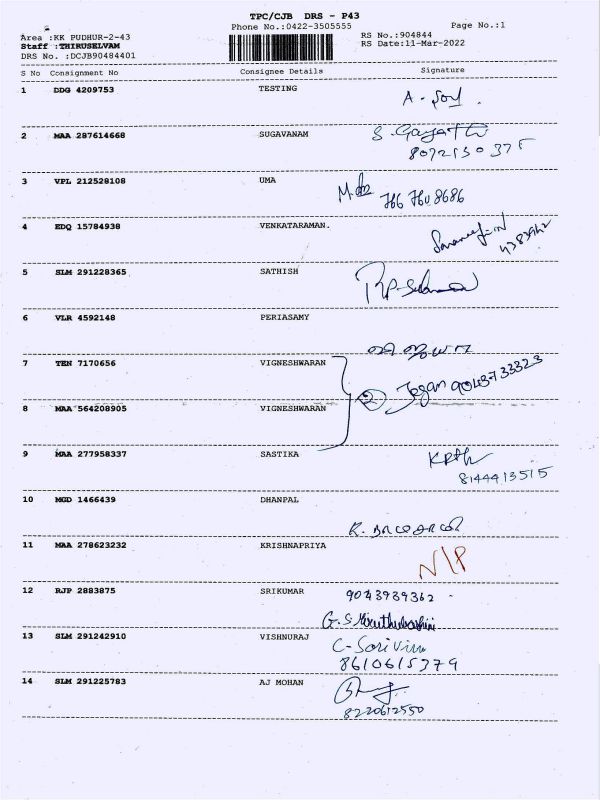 TPC/CJB DRS - P43
Area :KK PUDHUR-2-43 Phone No.:0422-3505555 Page No.:1
Staff :THIRUSELVAM RS No.:904844
DRS No. :DCJB90484401 RS Date:11-Mar-2022
S No Consignment No Consignee Details Signature
1 DDG 4209753 TESTING
2 MAA 287614668 SUGAVANAM S. Gayathri
8072130375
3 VPL 212528108 UMA
766 760 8686
4 EDQ 15784938 VENKATARAMAN.
5 SLM 291228365 SATHISH
6 VLR 4592148 PERIASAMY
7 TEN 7170656 VIGNESHWARAN
② Jegan 9043733323
8 MAA 564208905 VIGNESHWARAN
9 MAA 277958337 SASTIKA
8144413515
10 MGD 1466439 DHANPAL
11 MAA 278623232 KRISHNAPRIYA N/P
12 RJP 2883875 SRIKUMAR 9043939362
13 SLM 291242910 VISHNURAJ
8610615379
14 SLM 291225783 AJ MOHAN
8220612550